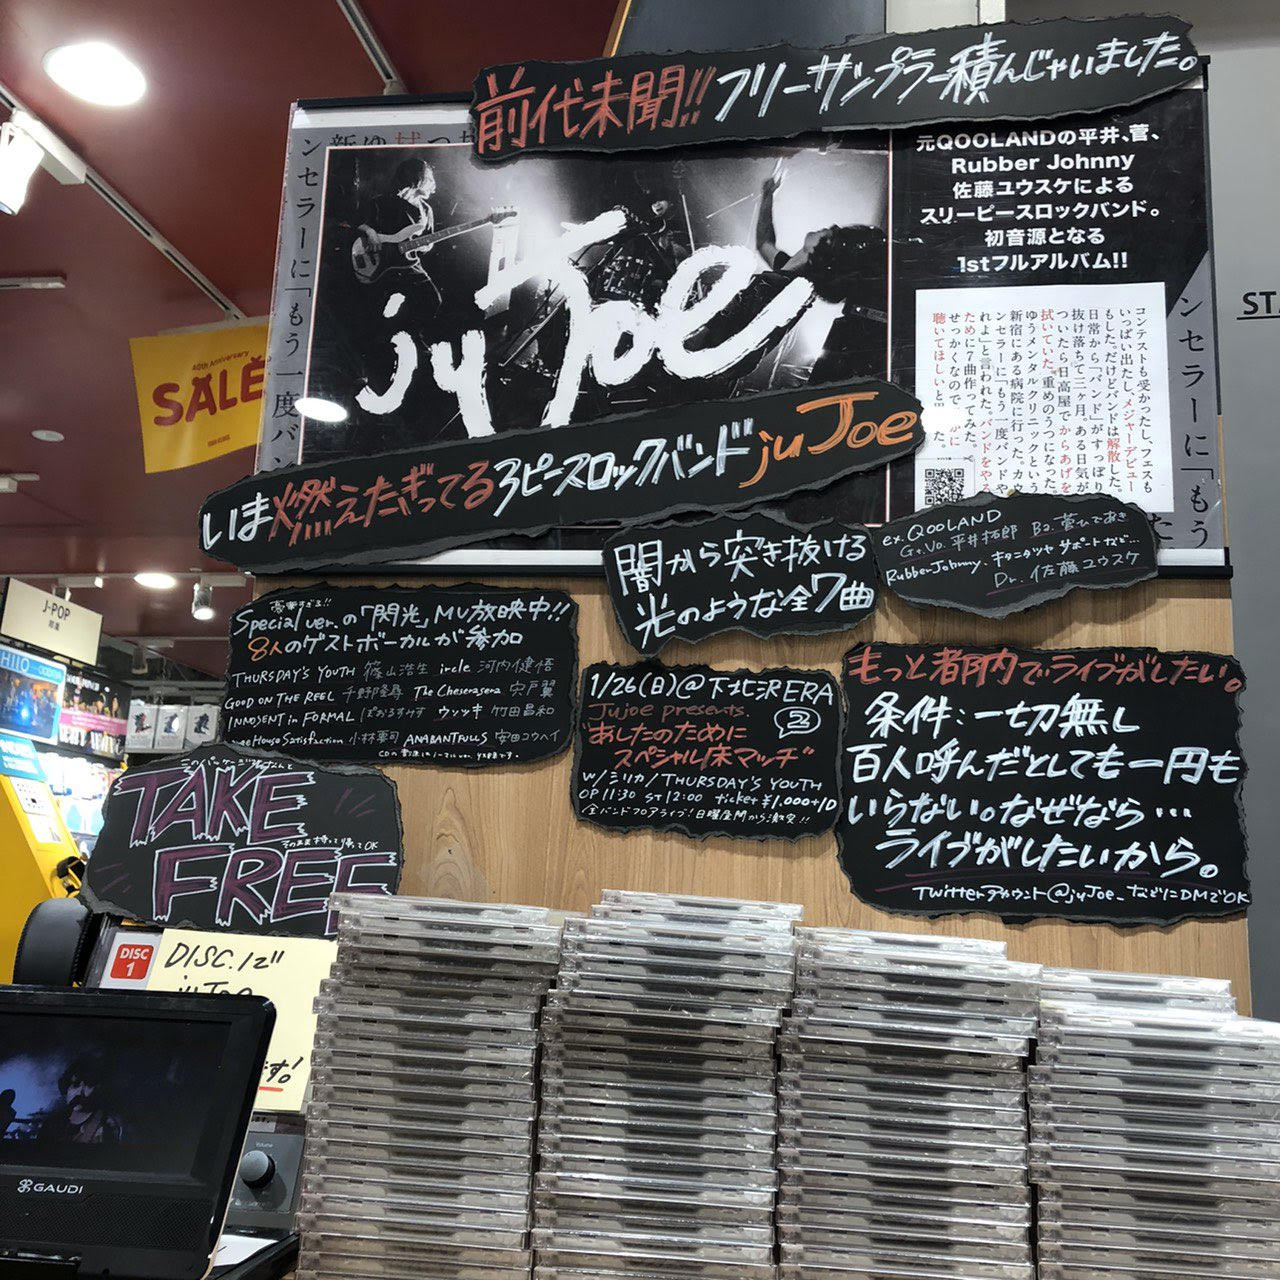 前代未聞!!フリーサンプラー積んじゃいました。
元QOOLANDの平井、菅、
Rubber Johnny
佐藤ユウスケによる
スリーピースロックバンド。
初音源となる
1stフルアルバム!!
juJoe
コンテストも受かったし、フェスも
いっぱい出たし、メジャーデビュー
もした。だけどバンドは解散した。
日常から「バンド」がすっぽり
抜け落ちて三ヶ月。ある日気が
ついたら日高屋でからあげを
拭いていた。重めのうつになった。
ゆうメンタルクリニックという
新宿にある病院に行った。カウ
ンセラーに「もう一度バンドや
れよ」と言われた。バンドをやる
ために7曲作ってみた。
聴いてほしいと
ンセラーに「もう一度バン
ンセラーに「もう
いま燃えたぎってる3ピースロックバンドjuJoe
ex.QOOLAND
Gt.Vo.平井拓郎 Ba.菅ひであき
RubberJohnny、キタニタツヤ サポートなど…
Dr.佐藤ユウスケ
闇から突き抜ける
光のような全7曲
豪華すぎる!!
Special ver.の「閃光」MV放映中!!
8人のゲストボーカルが参加
THURSDAY'S YOUTH 篠山浩生 ircle 河内健悟
GOOD ON THE REEL 千野隆尋 The Cheserasera 宍戸翼
INNOSENT in FORMAL ぽおるすみす ウソツキ 竹田昌和
House Satisfaction 小林軍司 ANABANTFULLS 安田コウヘイ
1/26(日)@下北沢ERA
Jujoe presents.
"あしたのために2
スペシャル床マッチ"
W/シリカ/THURSDAY'S YOUTH
OP 11:30 ST 12:00 ticket ¥1,000+1D
全バンドフロアライブ!日曜昼間から激突!!
もっと都内でライブがしたい。
条件:一切無し
百人呼んだとしても一円も
いらない。なぜなら…
ライブがしたいから。
Twitterアカウント@juJoe_などにDMでOK
TAKE
そのまま持って帰ってOK
FREE
40th Anniversary
SALE
J-POP
邦楽
DISC
1
DISC.1で
juJoe
ます!
GAUDI
Volume
ST